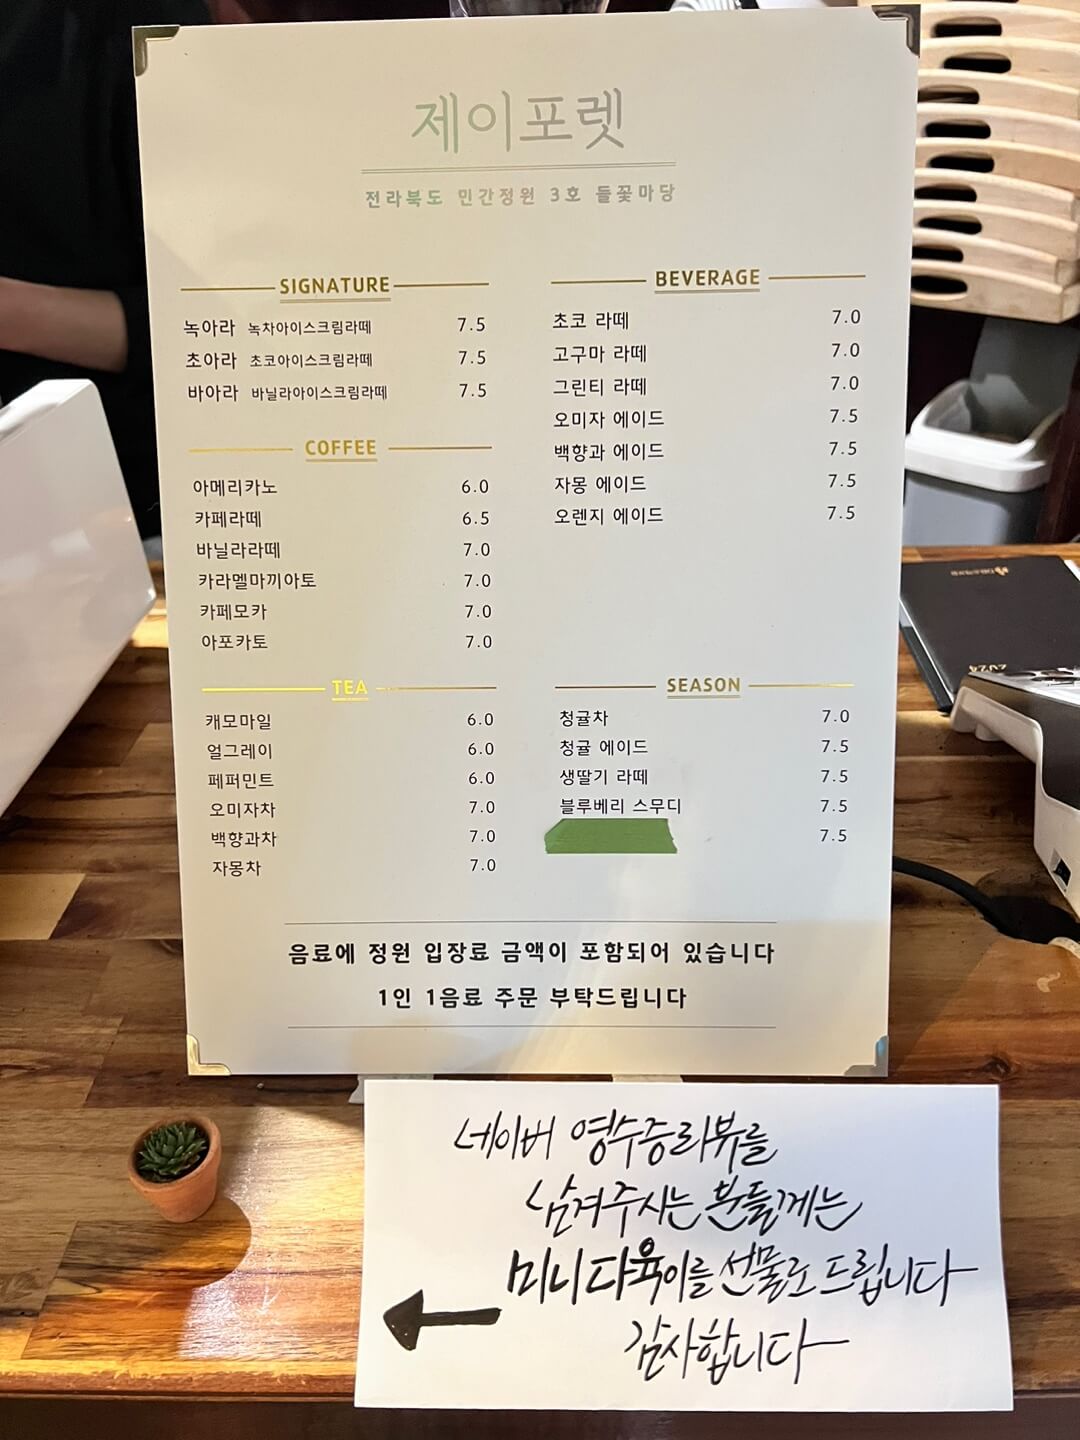 제이포렛
전라북도 민간정원 3호 들꽃마당
SIGNATURE
녹아라 녹차아이스크림라떼 7.5
초아라 초코아이스크림라떼 7.5
바아라 바닐라아이스크림라떼 7.5
COFFEE
아메리카노 6.0
카페라떼 6.5
바닐라라떼 7.0
카라멜마끼아토 7.0
카페모카 7.0
아포카토 7.0
TEA
캐모마일 6.0
얼그레이 6.0
페퍼민트 6.0
오미자차 7.0
백향과차 7.0
자몽차 7.0
BEVERAGE
초코 라떼 7.0
고구마 라떼 7.0
그린티 라떼 7.0
오미자 에이드 7.5
백향과 에이드 7.5
자몽 에이드 7.5
오렌지 에이드 7.5
SEASON
청귤차 7.0
청귤 에이드 7.5
생딸기 라떼 7.5
블루베리 스무디 7.5
7.5
음료에 정원 입장료 금액이 포함되어 있습니다
1인 1음료 주문 부탁드립니다
네이버 영수증리뷰를
남겨주시는 분들께는
미니다육이를 선물로 드립니다
감사합니다
2024